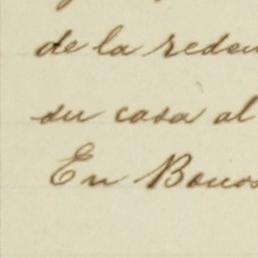 de la reden
su casa al
En Bouos